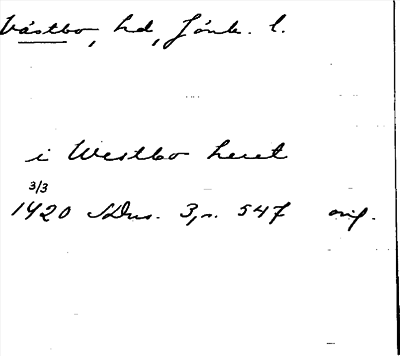 Västbo, hd, Jönk. l.
i Westbo heret
3/3
1420 SDns. 3, s. 547 orig.